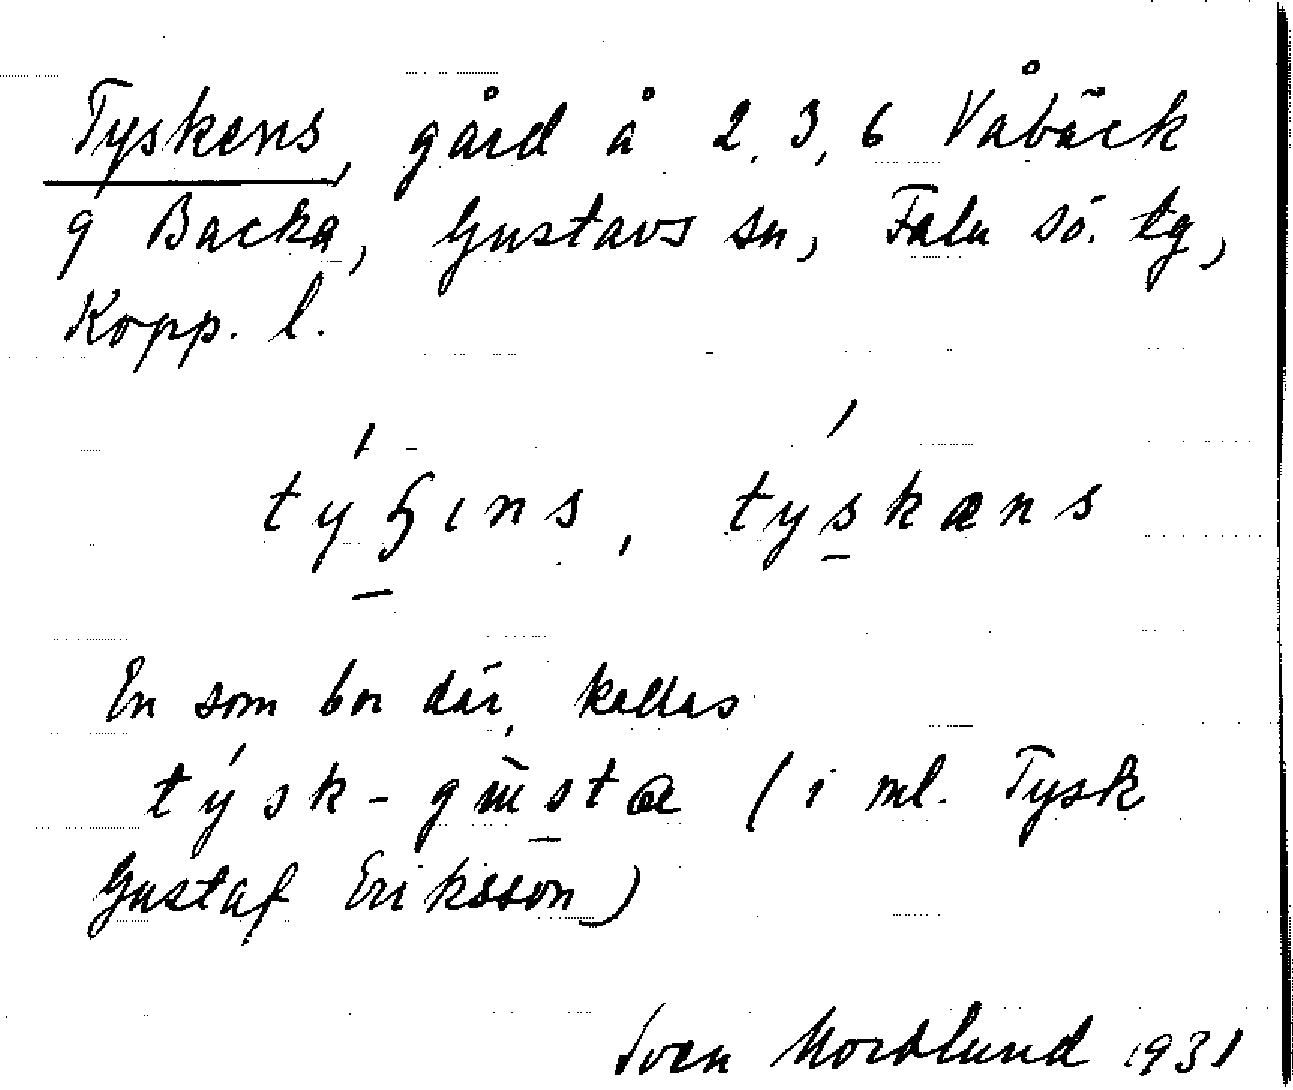 Tyskens, gård å 2, 3, 6 Våbäck
9 Backa, Gustavs sn, Falu sö. tg,
Kopp. l.
En som bor där, kallas
(i ml. Tysk
Gustaf Eriksson)
Sven Nordlund 1931